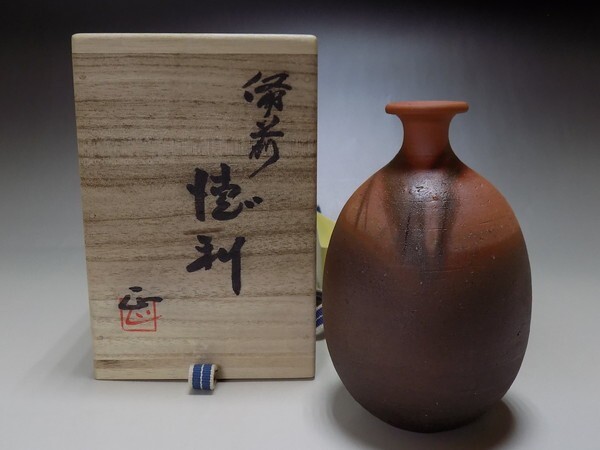 備前
徳利
正